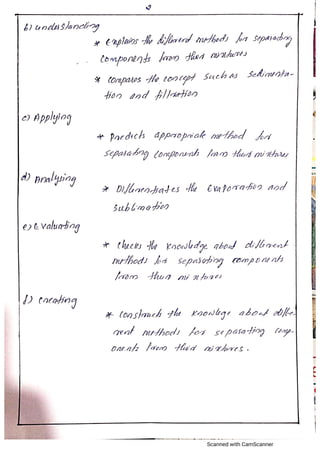 2
b) understanding
* explains the different methods for separating
components from their mixtures
* compares the concept such as Sedimenta-
tion and filtration
c) Applying
* Predicts appropriate method for
separating components from their mixtures
d) Analysing
* Differentiates the Evaporation and
Sublimation
e) Evaluating
* checks the knowledge about different
methods for separating components
from their mixtures
f) Creating
* constructs the knowlege about diffe-
rent methods for separating comp-
onents from their mixtures.
Scanned with CamScanner